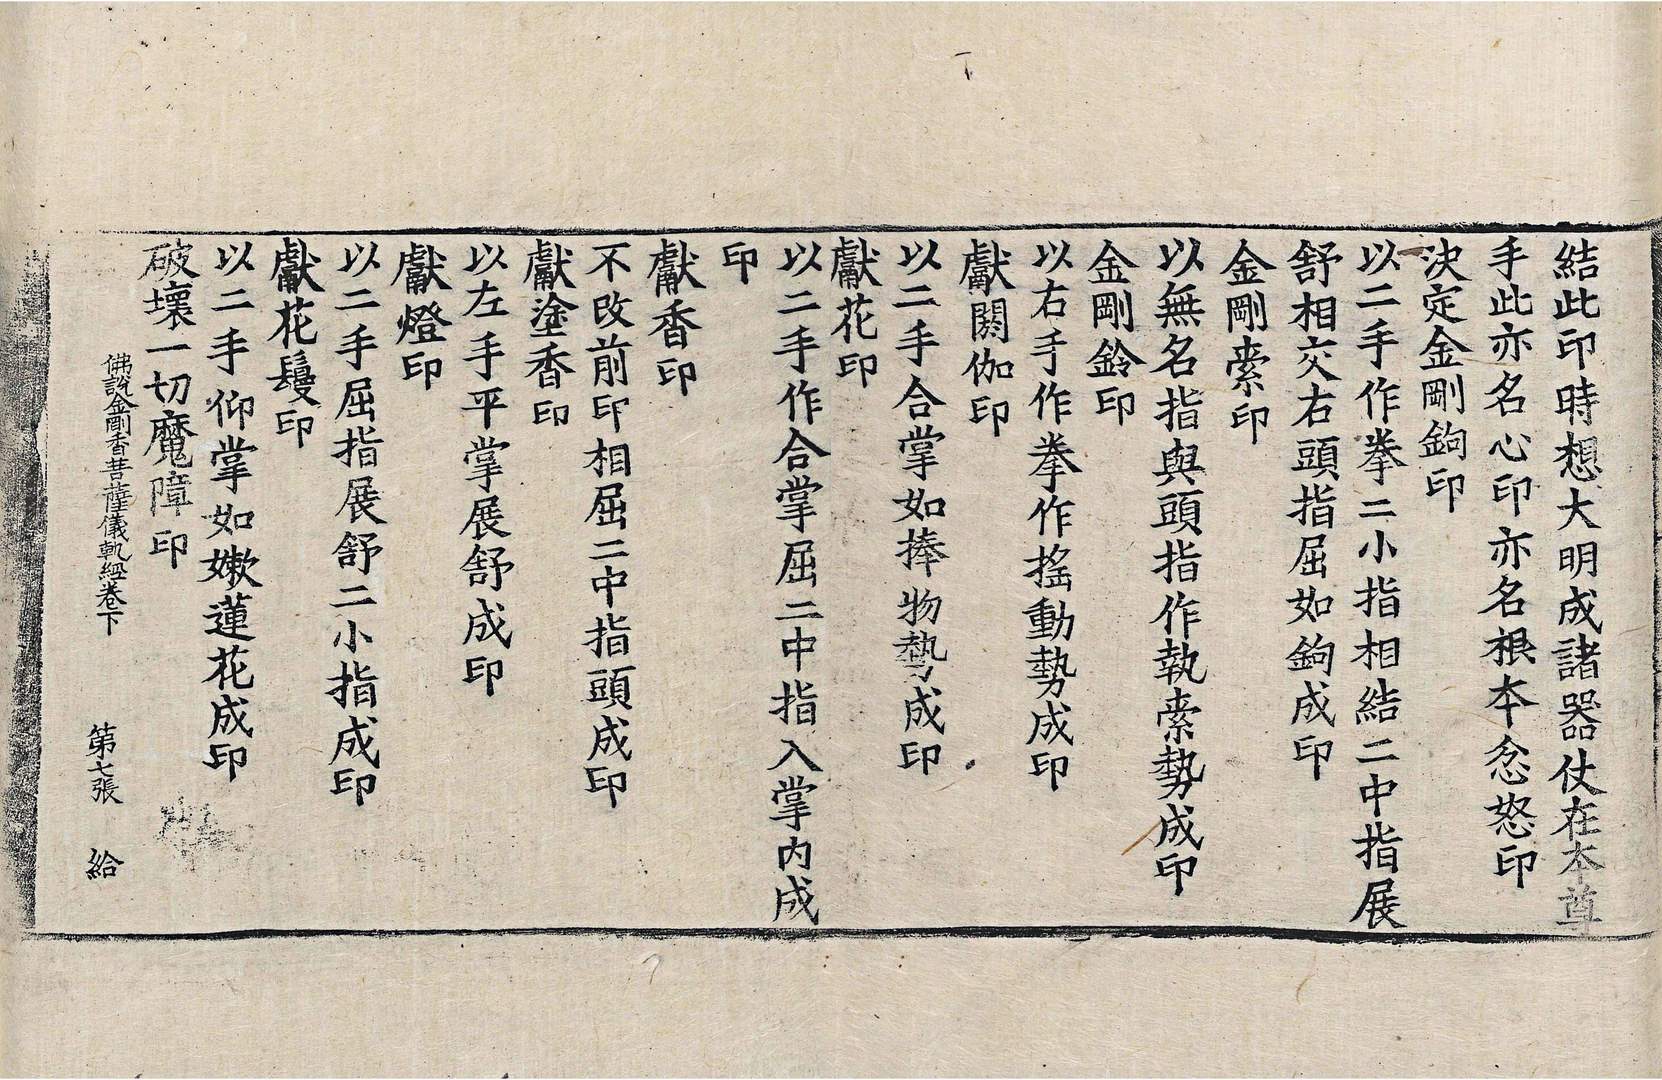 結此印時想大明成諸器仗在本尊
手此亦名心印亦名根本忿怒印
決定金剛鉤印
以二手作拳二小指相結二中指展
舒相交右頭指屈如鉤成印
金剛索印
以無名指與頭指作執索勢成印
金剛鈴印
以右手作拳作搖動勢成印
獻閼伽印
以二手合掌如捧物勢成印
獻花印
以二手作合掌屈二中指入掌內成
印
獻香印
不改前印相屈二中指頭成印
獻塗香印
以左手平掌展舒成印
獻燈印
以二手屈指展舒二小指成印
獻花鬘印
以二手仰掌如嫩蓮花成印
破壞一切魔障印
佛說金剛香菩薩儀軌經卷下 第七張 給